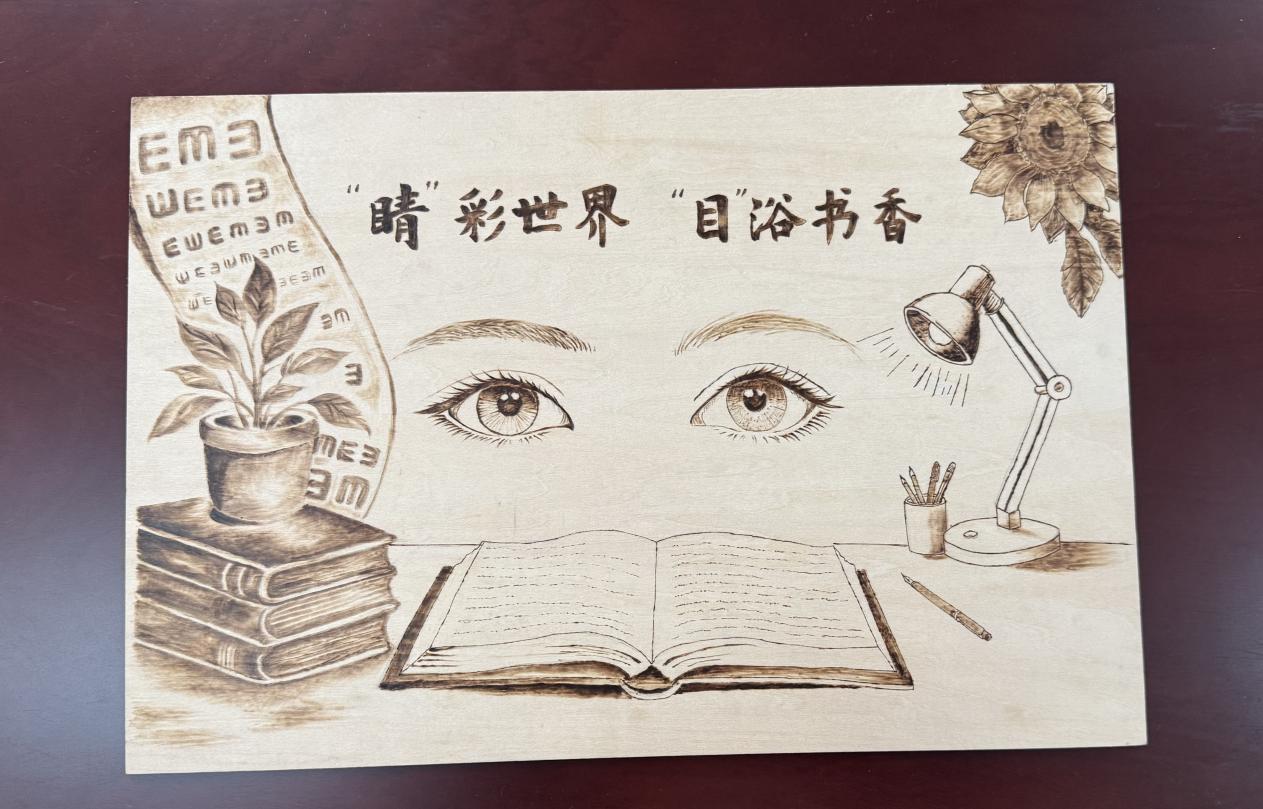 EMƎ
WEMƎ
EWEMƎM
"睛"彩世界 "目"浴书香
WEƎWMƎME
ƎEƎM
WE
ƎM
Ǝ
MEƎ
ƎM